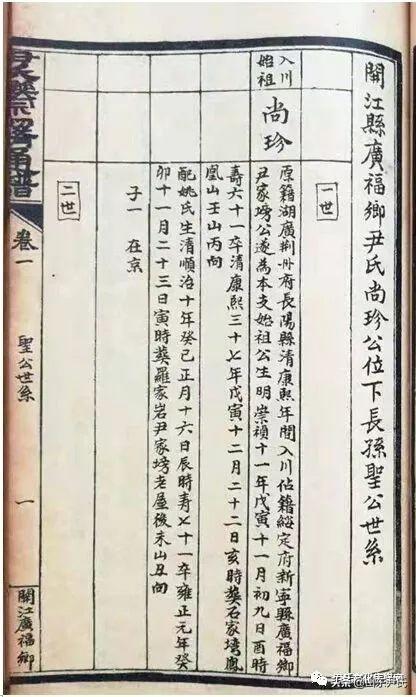 開江縣廣福鄉尹氏尚珍公位下長孫聖公世系
一世
入川
始祖
尚珍
原籍湖廣荆州府長陽縣清康熙年間入川佔籍綏定府新寧縣廣福鄉
尹家塝公遂為本支始祖公生明崇禎十一年戊寅十一月初九日酉時
壽六十一卒清康熙三十七年戊寅十二月二十二日亥時葬石家塆鳳
凰山壬山丙向
配姚氏生清順治十年癸巳正月十六日辰時壽七十一卒雍正元年癸
卯十一月二十三日寅時葬羅家岩尹家塝老屋後未山丑向
子一 在京
二世
譜
卷一
聖公世系
一
開江廣福鄉
头条